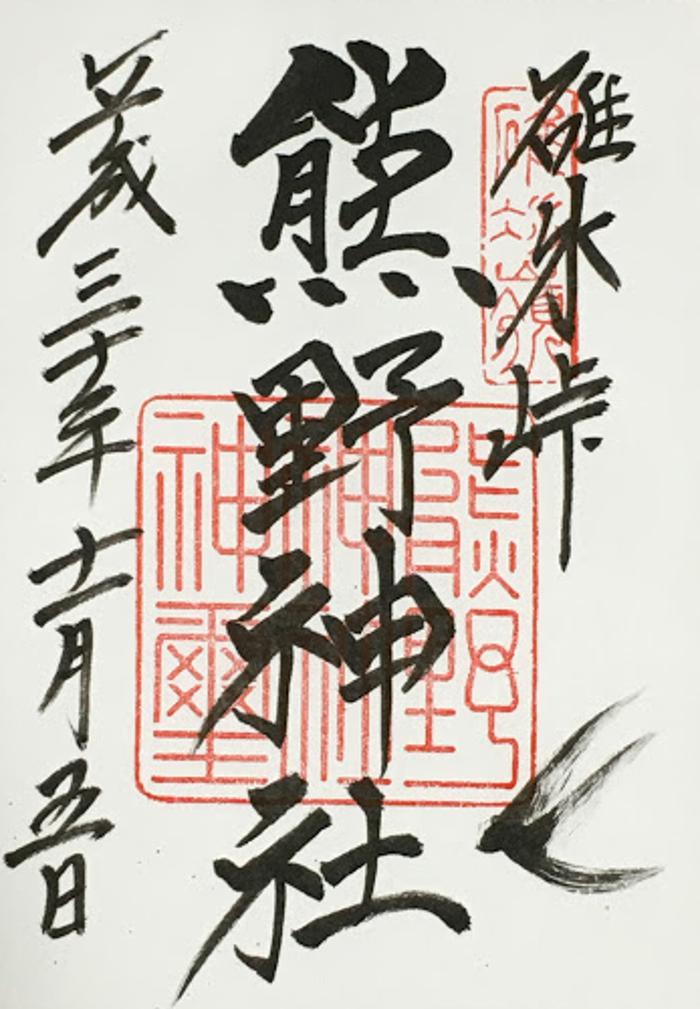 碓氷峠
碓氷嶺
熊野神社
熊野神社神璽
平成三十年十一月五日